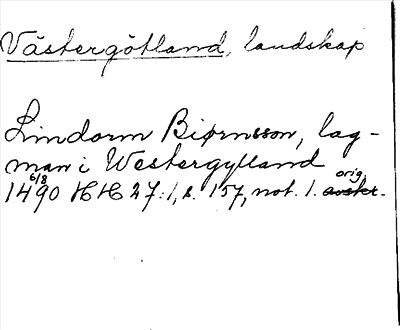 Västergötland, landskap
Lindorm Biørnsson, lag-
man i Westergylland
14 6/8 90 HH 27:1, s. 157, not. 1. orig. avskr.